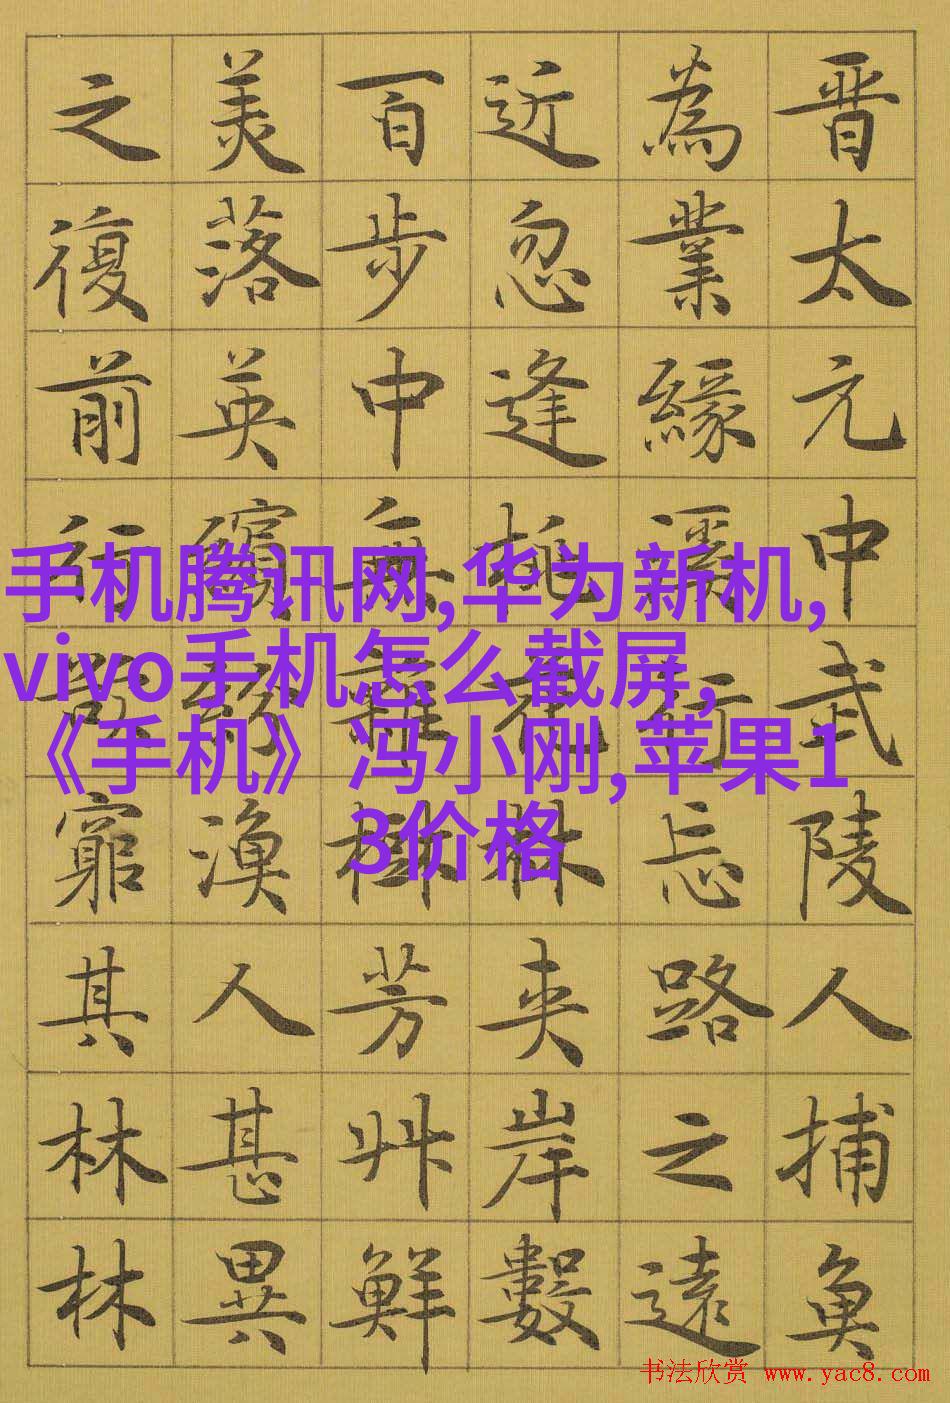 晋太元中武陵人捕魚
為業緣溪行忘路之遠
近忽逢桃花林夾岸數
百步中無雜樹芳艸鮮
美落英繽紛漁人甚異
之復前行欲窮其林林
手机腾讯网,华为新机,
vivo手机怎么截屏,
《手机》冯小刚,苹果1
3价格
书法欣赏 www.yac8.com